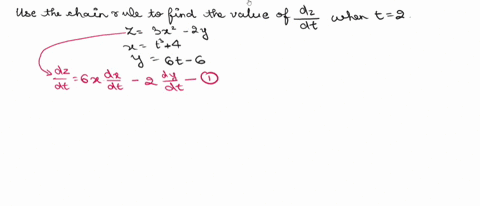 Use the chain rule to find the value of dz/dt when t = 2.
z = 3x² - 2y
x = t³ + 4
y = 6t - 6
dz/dt = 6x dx/dt - 2 dy/dt - ①